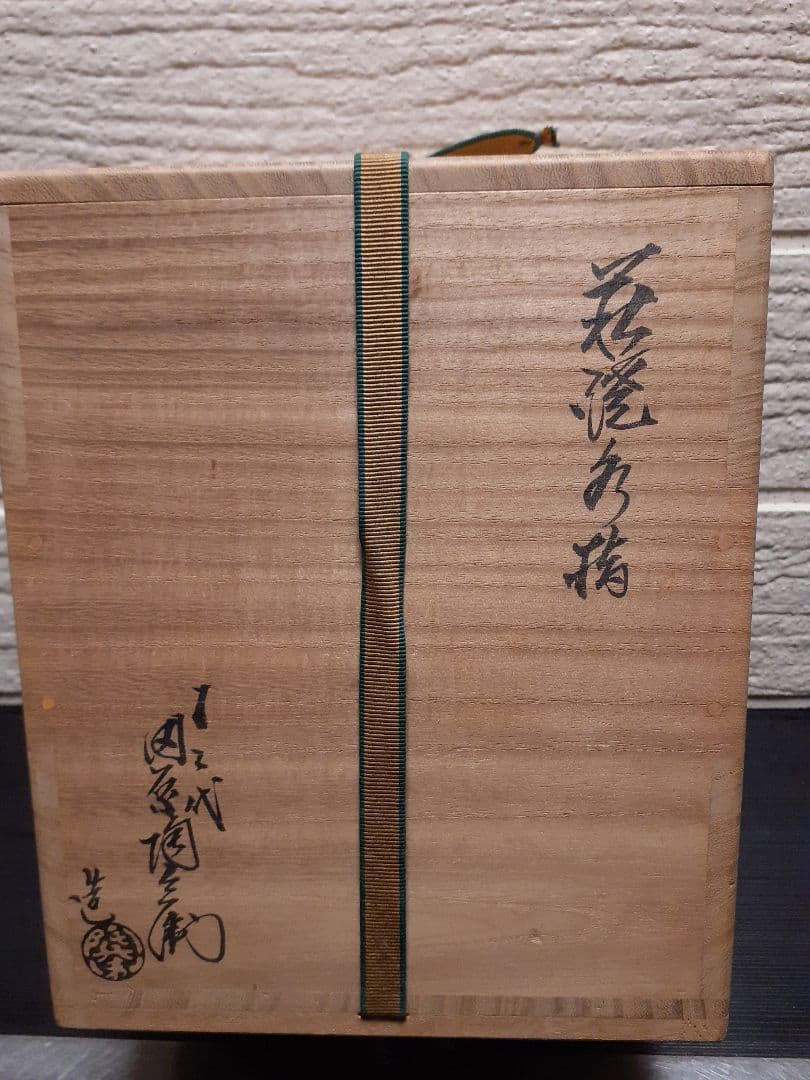 萩焼水指
十三代
田原陶兵衛
造